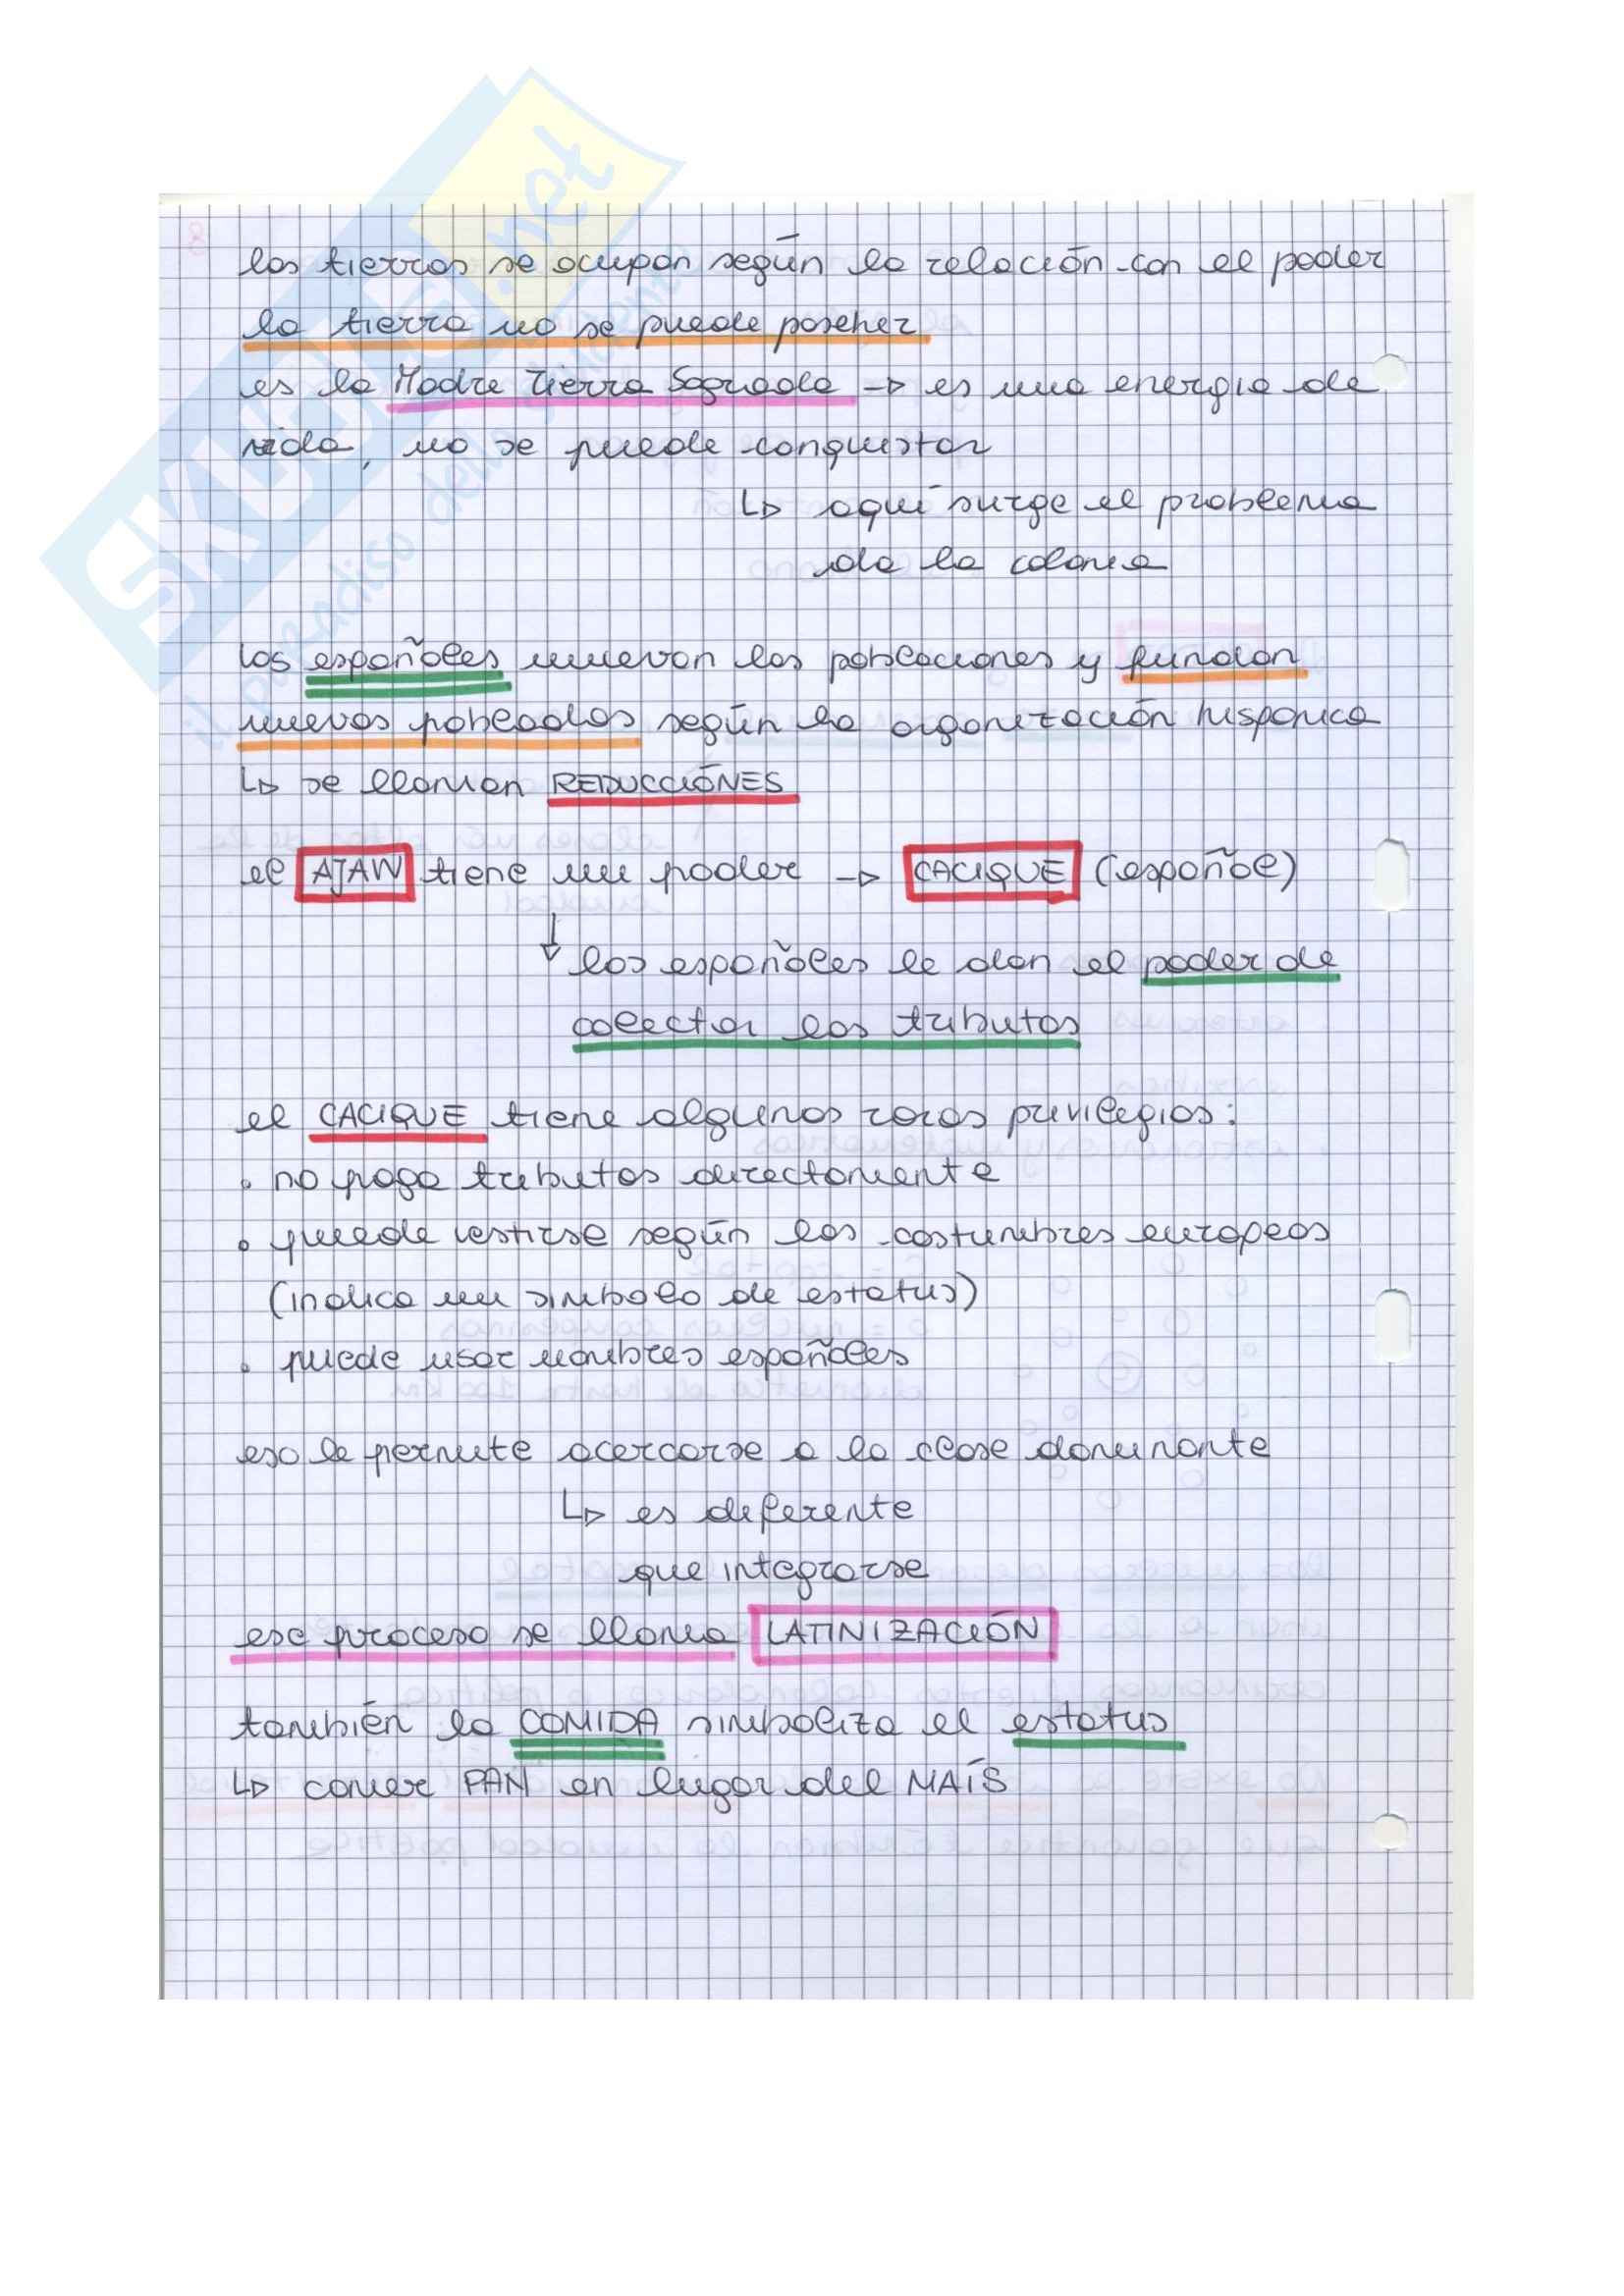 SKUOLA.net
il paradiso dello studente
las tierras se ocupan según la relación con el poder
la tierra no se puede poseher
es la Madre Tierra Sagrada → es una energia de
vida, no se puede conquistar
↳ aquí surge el problema
de la colonia
los españoles mueven las poblaciones y fundan
nuevos poblados según la organización hispanica
↳ se llaman REDUCCIÓNES
el AJAW tiene un poder → CACIQUE (español)
↓ los españoles le dan el poder de
colectar los tributos
el CACIQUE tiene algunos raros privilegios:
• no paga tributos directamente
• puede vestirse según las costumbres europeas
(indica un simbolo de estatus)
• puede usar nombres españoles
eso le permite acercarse a la clase dominante
↳ es diferente
que integrarse
ese proceso se llama LATINIZACIÓN
también la COMIDA simboliza el estatus
↳ comer PAN en lugar del MAÍS